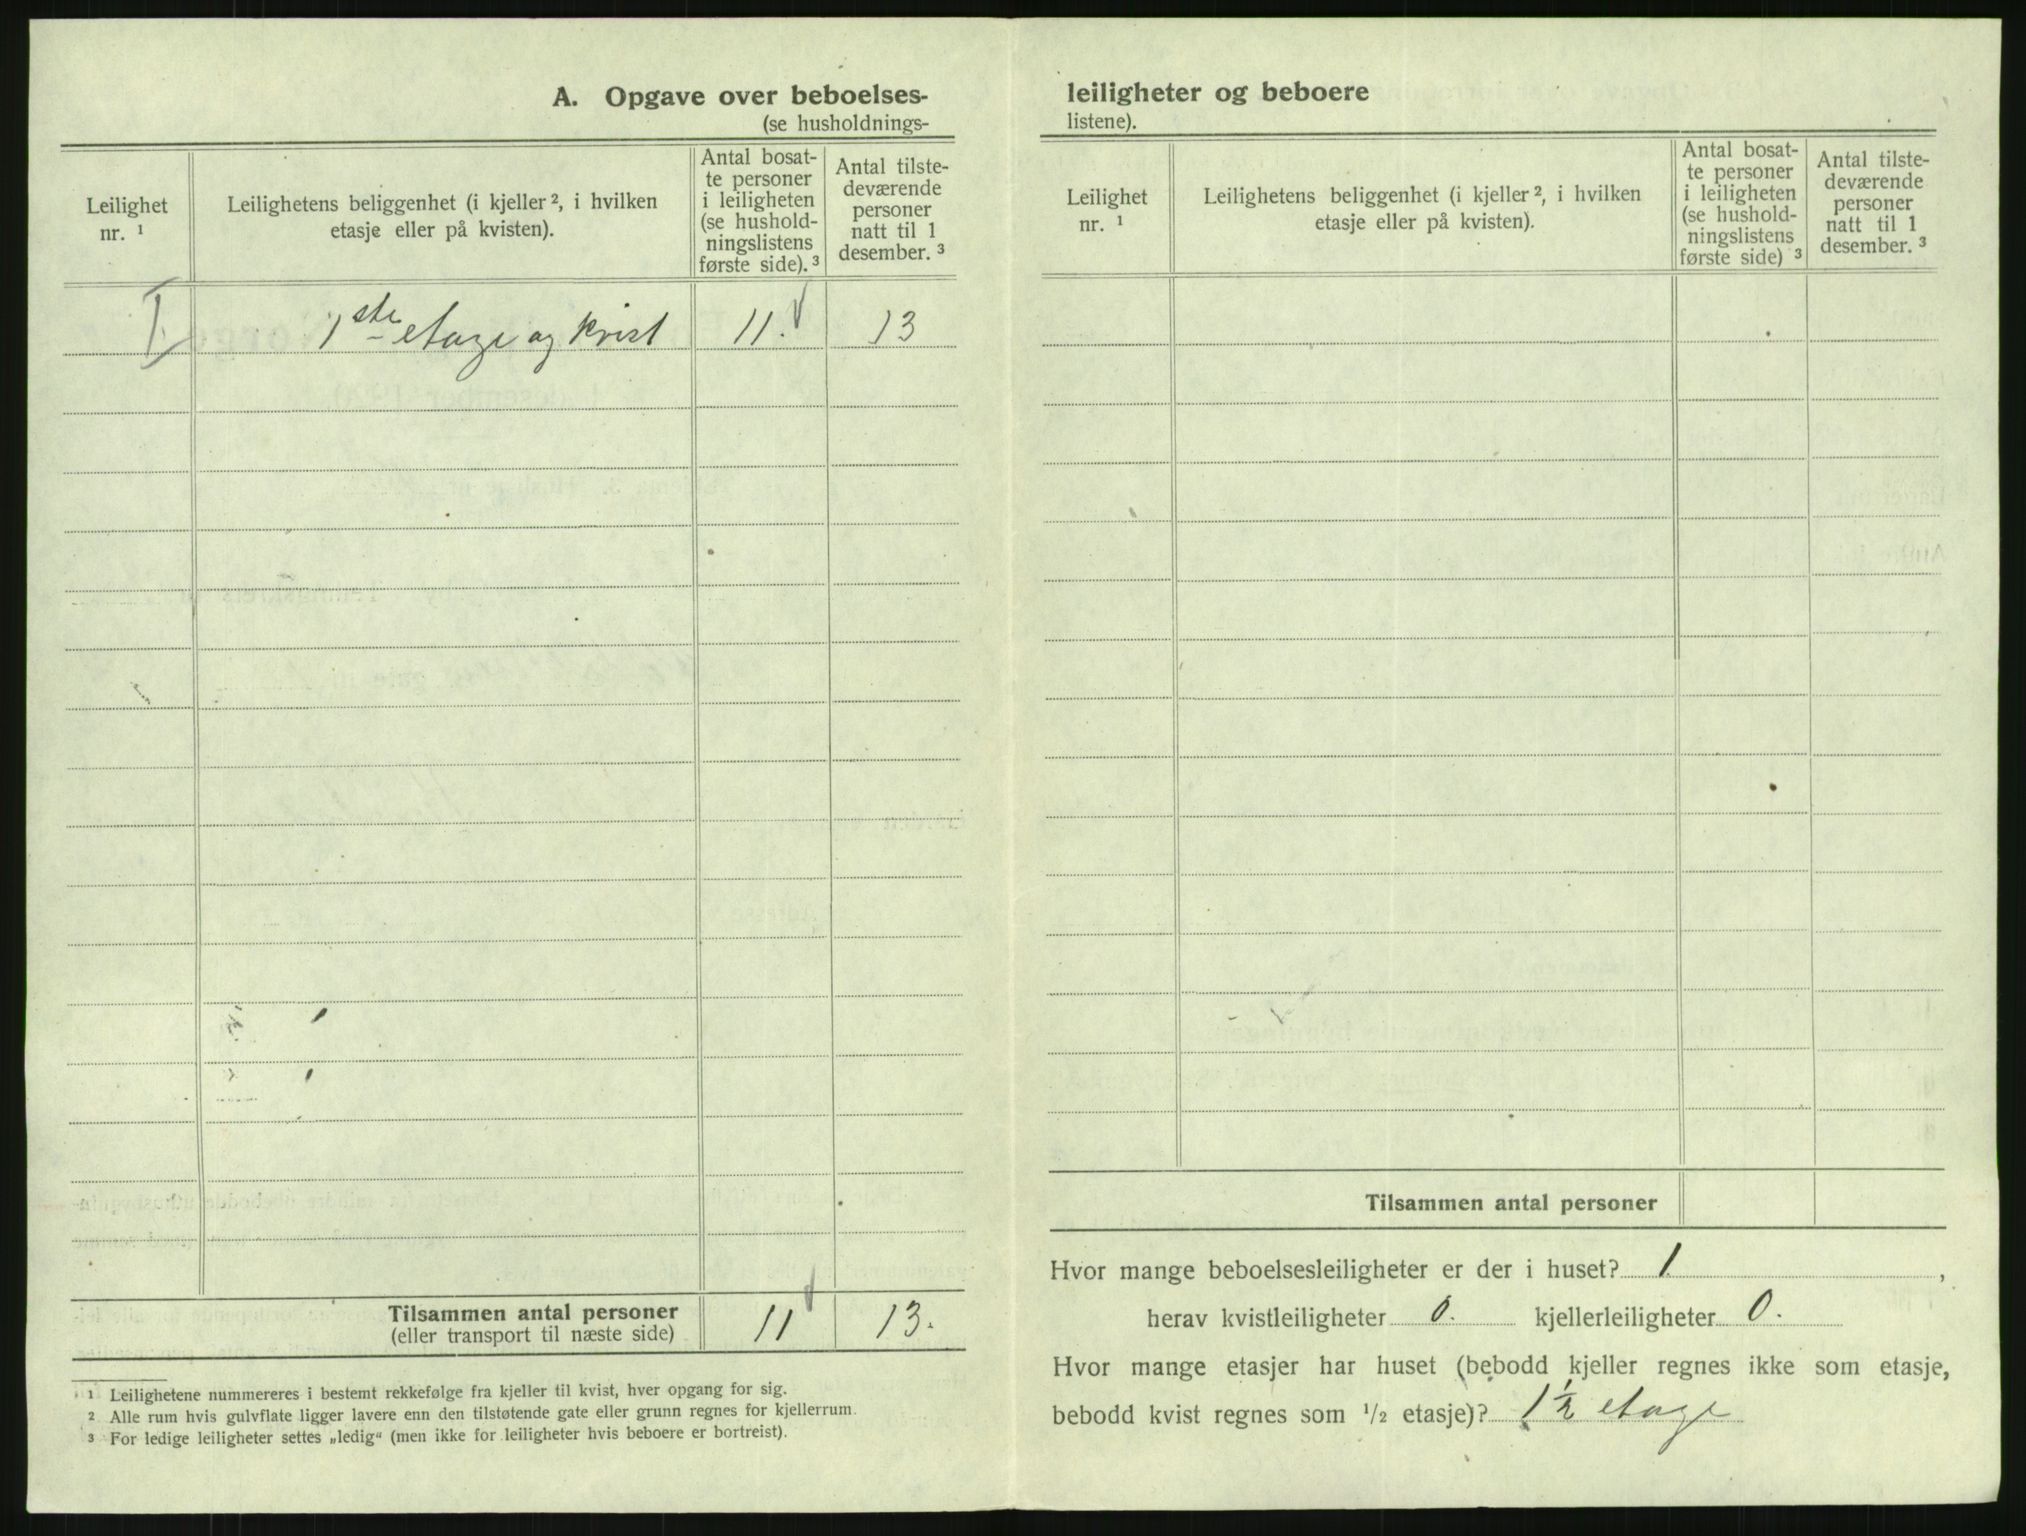 A. Opgave over beboelses-
(se husholdnings-
Leilighet nr. ¹
Leilighetens beliggenhet (i kjeller ², i hvilken
etasje eller på kvisten).
Antal bosat-
te personer
i leiligheten
(se hushold-
ningslistens
første side). ³
Antal tilste-
deværende
personer
natt til 1
desember. ³
I 1ste etage og kvist 11. 13
Tilsammen antal personer 11 13.
(eller transport til næste side)
¹ Leilighetene nummereres i bestemt rekkefølge fra kjeller til kvist, hver opgang for sig.
² Alle rum hvis gulvflate ligger lavere enn den tilstøtende gate eller grunn regnes for kjellerrum.
³ For ledige leiligheter settes „ledig“ (men ikke for leiligheter hvis beboere er bortreist).
leiligheter og beboere
listene).
Leilighet nr. ¹
Leilighetens beliggenhet (i kjeller ², i hvilken
etasje eller på kvisten).
Antal bosat-
te personer
i leiligheten
(se hushold-
ningslistens
første side) ³
Antal tilste-
deværende
personer
natt til 1
desember. ³
Tilsammen antal personer
Hvor mange beboelsesleiligheter er der i huset? 1. ,
herav kvistleiligheter 0. kjellerleiligheter 0.
Hvor mange etasjer har huset (bebodd kjeller regnes ikke som etasje,
bebodd kvist regnes som 1/2 etasje)? 1 1/2 etage